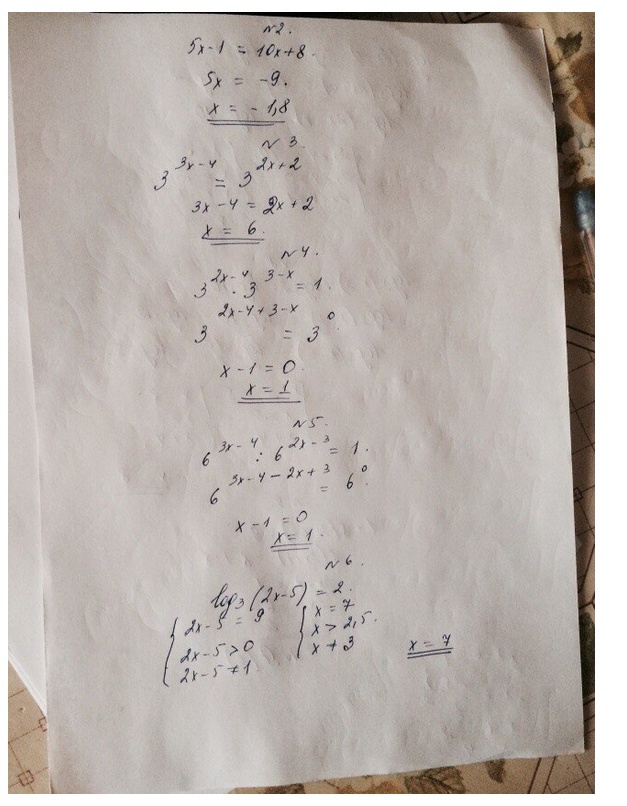 N2.
5x-1 = 10x+8.
5x = -9.
x = -1,8
N3.
3^{3x-4} = 3^{2x+2}
3x-4 = 2x+2
x = 6.
N4.
3^{2x-4} · 3^{3-x} = 1.
3^{2x-4+3-x} = 3^{0}.
x-1 = 0.
x = 1
N5.
6^{3x-4} : 6^{2x-3} = 1.
6^{3x-4-2x+3} = 6^{0}.
x-1 = 0
x = 1.
N6.
log₃(2x-5) = 2.
{ 2x-5 = 9 { x = 7
2x-5 > 0 x > 2,5.
2x-5 ≠ 1 x ≠ 3 x = 7